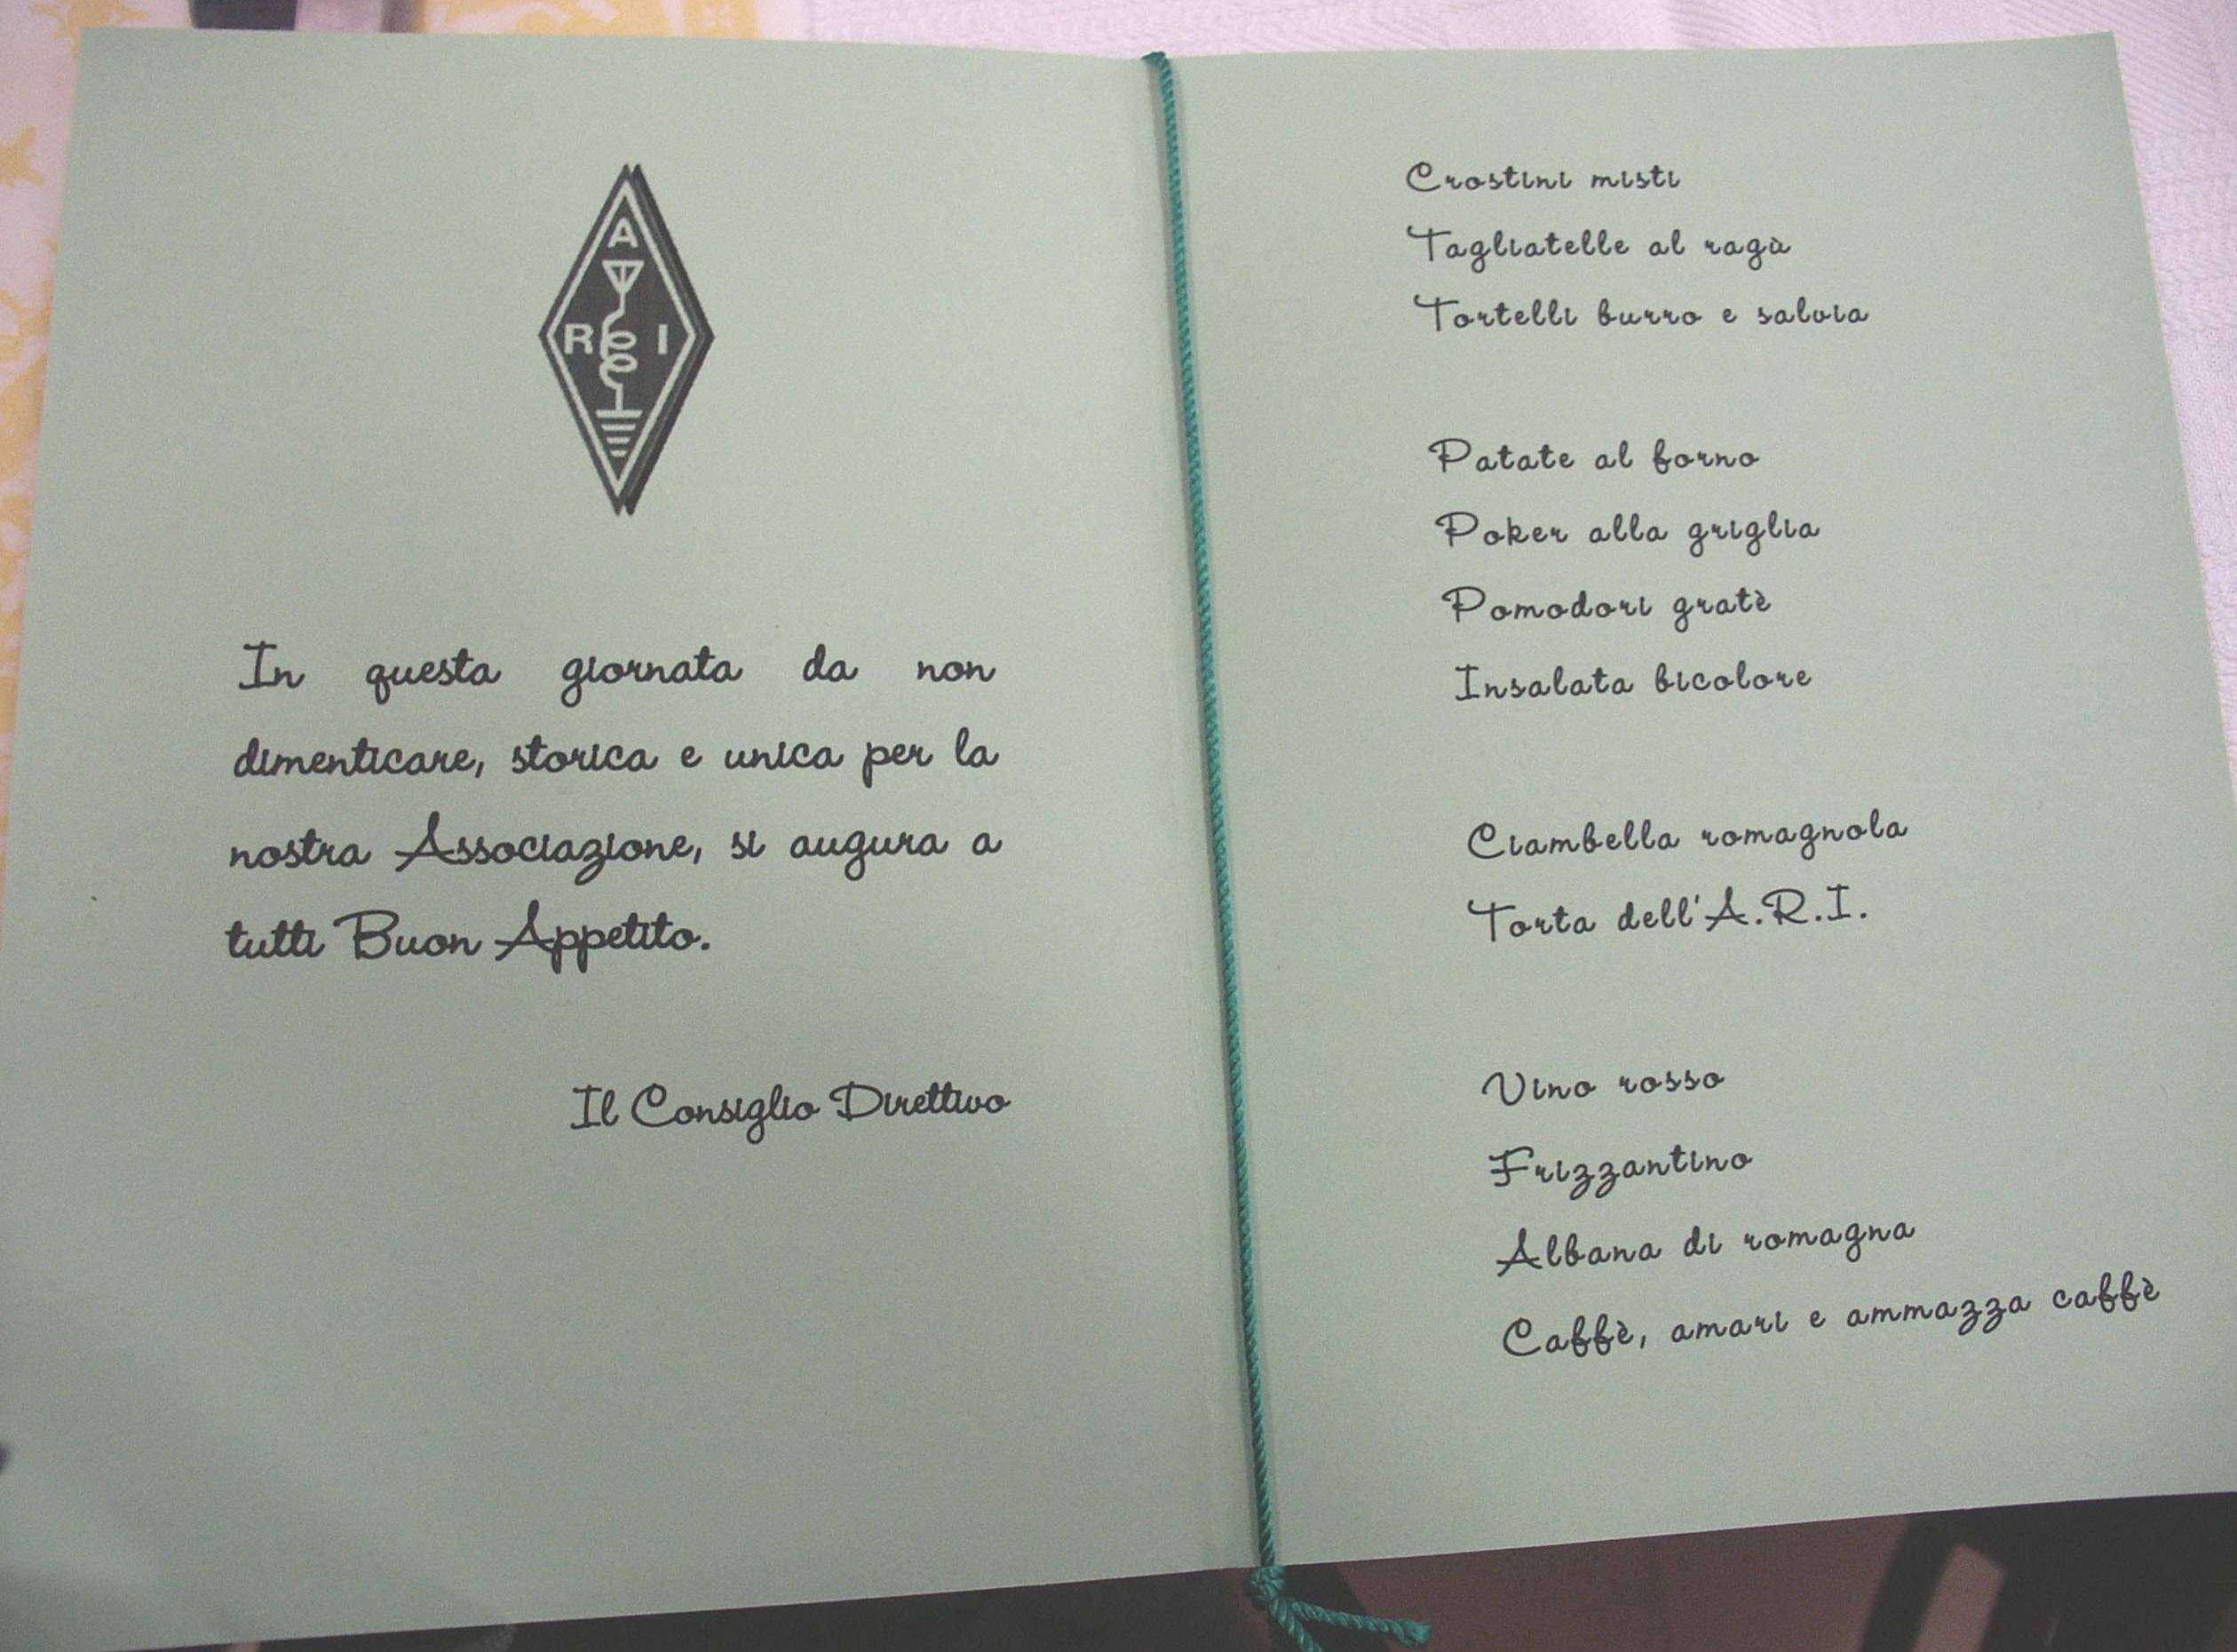 A
R I
In questa giornata da non
dimenticare, storica e unica per la
nostra Associazione, si augura a
tutti Buon Appetito.
Il Consiglio Direttivo
Crostini misti
Tagliatelle al ragù
Tortelli burro e salvia
Patate al forno
Poker alla griglia
Pomodori gratè
Insalata bicolore
Ciambella romagnola
Torta dell'A.R.I.
Vino rosso
Frizzantino
Albana di romagna
Caffè, amari e ammazza caffè